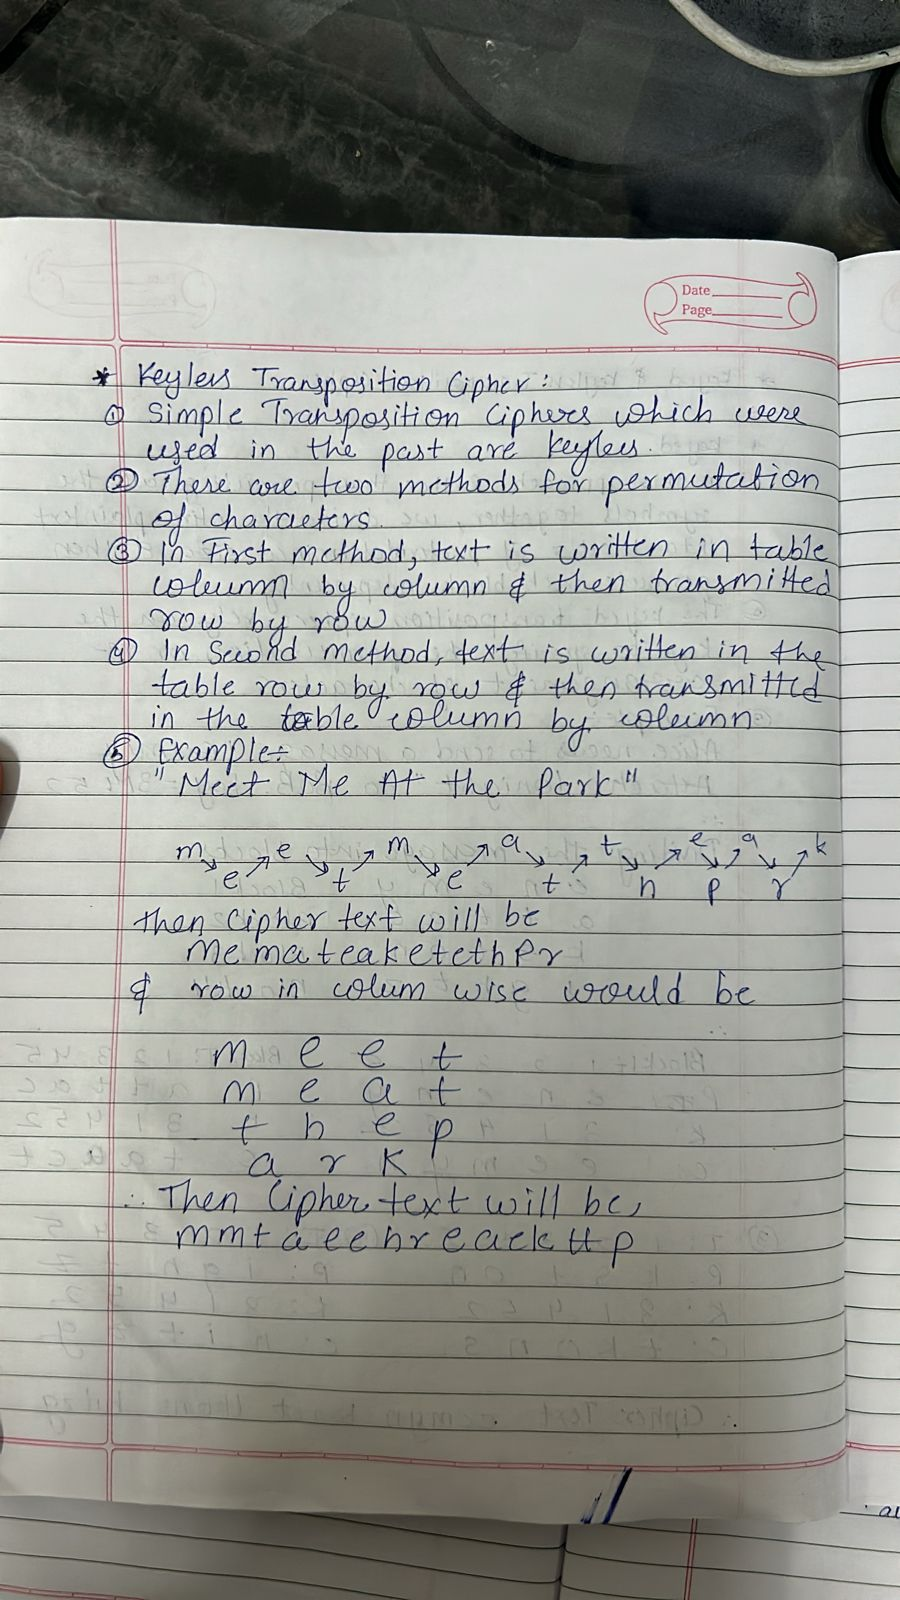 Date
Page
* Keyless Transposition Cipher:
① Simple Transposition Ciphers which were
used in the past are keyless.
② There are two methods for permutation
of characters.
③ In First method, text is written in table
column by column & then transmitted
row by row
④ In Second method, text is written in the
table row by row & then transmitted
in the table column by column
⑤ Example:-
"Meet Me At the Park"
m e m a t e a k
e t e t h p r
then Cipher text will be
Memateaketethpr
& row in colum wise would be
m e e t
m e a t
t h e p
a r k
∴ Then Cipher text will be,
mmtaeehreaekttp